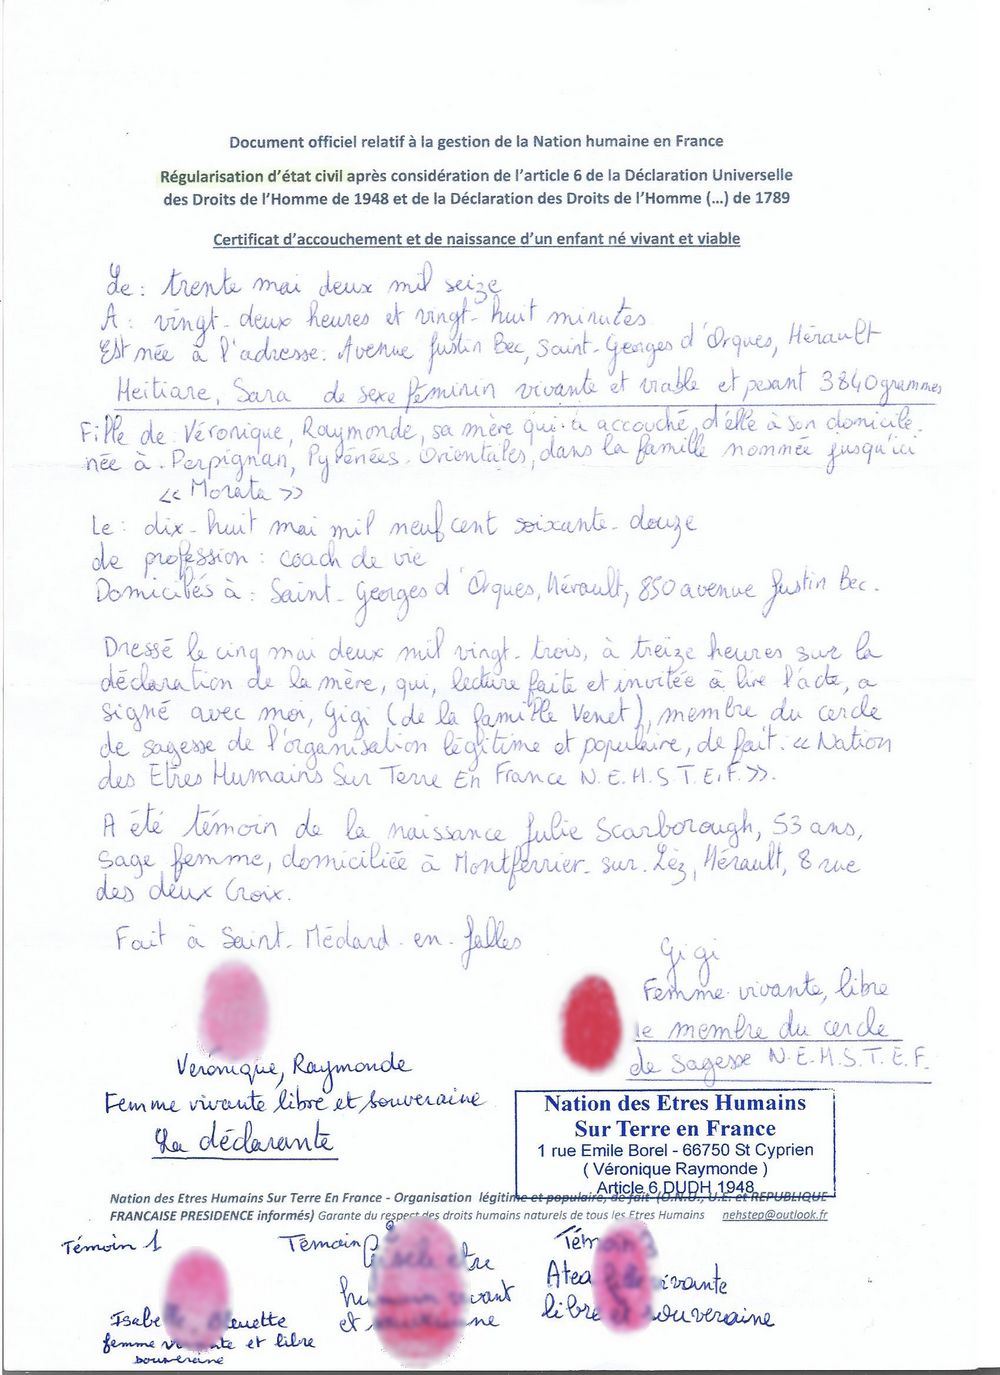 Document officiel relatif à la gestion de la Nation humaine en France
Régularisation d'état civil après considération de l'article 6 de la Déclaration Universelle
des Droits de l'Homme de 1948 et de la Déclaration des Droits de l'Homme (...) de 1789
Certificat d'accouchement et de naissance d'un enfant né vivant et viable
Le : trente mai deux mil seize
A : vingt-deux heures et vingt-huit minutes
Est née à l'adresse : Avenue Justin Bec, Saint-Georges d'Orques, Hérault
Heitiare, Sara de sexe féminin vivante et viable et pesant 3840 grammes
Fille de Véronique, Raymonde, sa mère qui a accouché d'elle à son domicile
née à Perpignan, Pyrénées-Orientales, dans la famille nommée jusqu'ici
<< Morata >>
Le : dix-huit mai mil neuf cent soixante-douze
de profession : coach de vie
Domiciliés à : Saint-Georges d'Orques, Hérault, 850 avenue Justin Bec.
Dressé le cinq mai deux mil vingt-trois, à treize heures sur la
déclaration de la mère, qui, lecture faite et invitée à lire l'acte, a
signé avec moi, Gigi (de la famille Venet), membre du cercle
de sagesse de l'organisation légitime et populaire, de fait : << Nation
des Etres Humains Sur Terre En France N.E.H.S.T.E.F. >>.
A été témoin de la naissance Julie Scarborough, 53 ans,
sage femme, domiciliée à Montferrier-sur-Lèz, Hérault, 8 rue
des deux Croix.
Fait à Saint-Médard-en-Jalles
Gigi
Femme vivante, libre
le membre du cercle
de sagesse N.E.H.S.T.E.F.
Véronique, Raymonde
Femme vivante libre et souveraine
La déclarante
Nation des Etres Humains
Sur Terre en France
1 rue Emile Borel - 66750 St Cyprien
( Véronique Raymonde )
Article 6 DUDH 1948
Nation des Etres Humains Sur Terre En France - Organisation légitime et populaire, de fait (O.N.U., U.E. et REPUBLIQUE
FRANCAISE PRESIDENCE informés) Garante du respect des droits humains naturels de tous les Etres Humains nehstep@outlook.fr
Témoin 1
femme vivante et libre
souveraine
Témoin 2
être
humain vivant
et
Témoin 3
Atea vivante
libre et souveraine